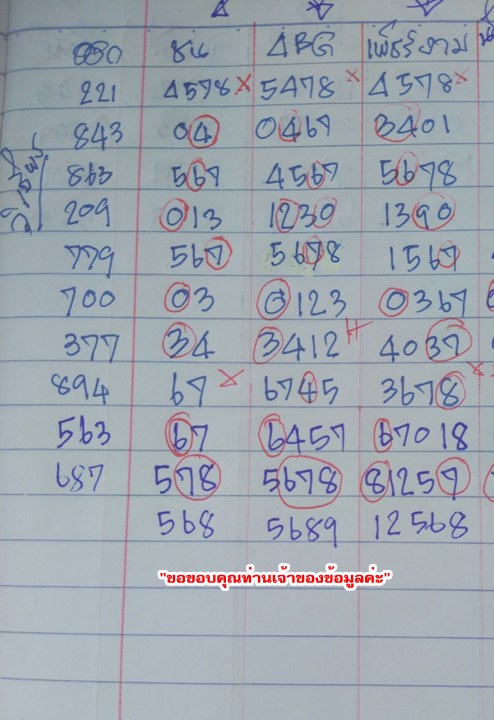 880 ชน ABG เพ็ชรงาม
221 4578 x 5478 x 4578 x
843 04 0467 3401
863 567 4567 5678
209 013 1230 1390
779 567 5678 1567
700 03 0123 0367
377 34 3412 H 4037
894 67 x 6745 3678 x
563 67 6457 67018
687 578 5678 81257
568 5689 12568
"ขอขอบคุณท่านเจ้าของข้อมูลค่ะ"